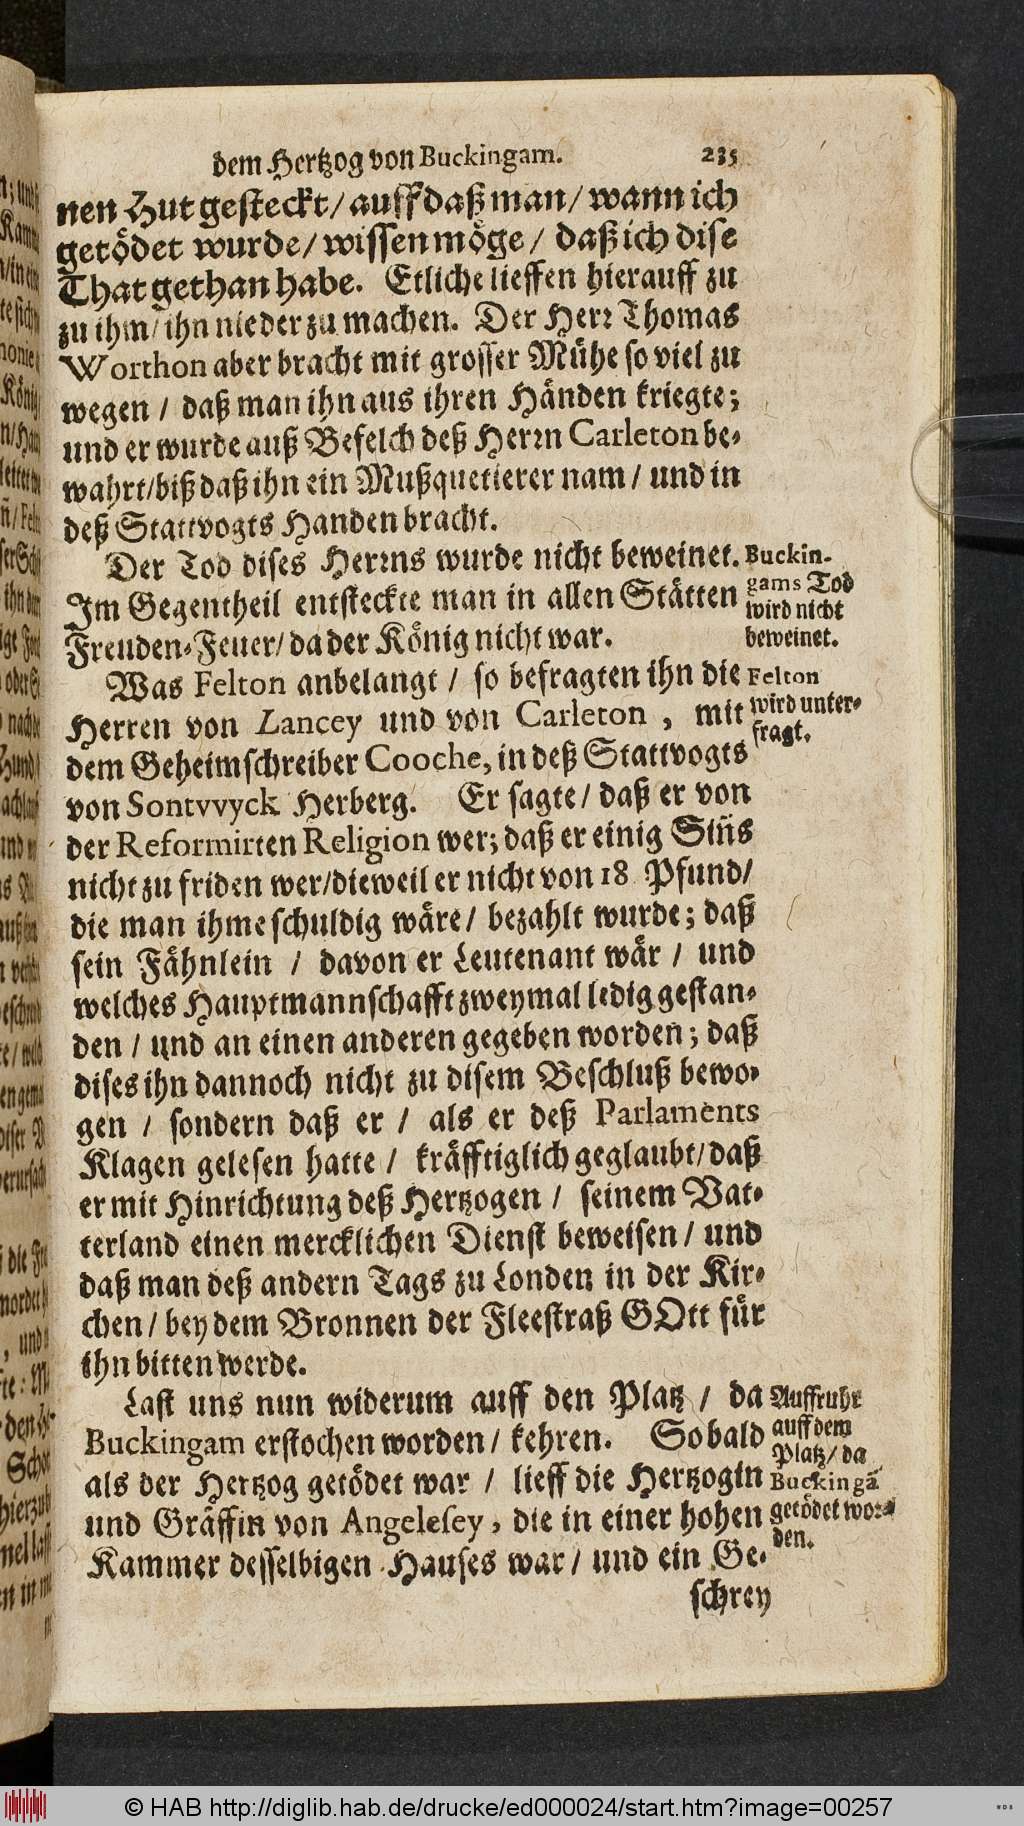 dem Hertzog von Buckingam. 235
nen Hut gesteckt/ auff daß man/ wann ich
getödet wurde/ wissen möge/ daß ich dise
That gethan habe. Etliche lieffen hierauff zu
zu ihm/ ihn nieder zu machen. Der Herr Thomas
Worthon aber bracht mit grosser Mühe so viel zu
wegen / daß man ihn aus ihren Händen kriegte;
und er wurde auß Befelch deß Herrn Carleton be-
wahrt/ biß daß ihn ein Mußquetierer nam / und in
deß Stattvogts Handen bracht.
Der Tod dises Herrns wurde nicht beweinet.
Im Gegentheil entsteckte man in allen Stätten
Freuden-Feuer/ da der König nicht war.
Buckin-
gams Tod
wird nicht
beweinet.
Was Felton anbelangt / so befragten ihn die
Herren von Lancey und von Carleton , mit
dem Geheimschreiber Cooche, in deß Stattvogts
von Sontvvyck Herberg. Er sagte/ daß er von
der Reformirten Religion wer; daß er einig Sin̄s
nicht zu friden wer/ dieweil er nicht von 18 Pfund/
die man ihme schuldig wäre/ bezahlt wurde; daß
sein Fähnlein / davon er Leutenant wär / und
welches Hauptmannschafft zweymal ledig gestan-
den / und an einen anderen gegeben worden; daß
dises ihn dannoch nicht zu disem Beschluß bewo-
gen / sondern daß er / als er deß Parlaments
Klagen gelesen hatte / kräfftiglich geglaubt/ daß
er mit Hinrichtung deß Hertzogen / seinem Vat-
terland einen mercklichen Dienst beweisen / und
daß man deß andern Tags zu Londen in der Kir-
chen / bey dem Bronnen der Fleestraß GOtt für
ihn bitten werde.
Felton
wird unter-
fragt.
Last uns nun widerum auff den Platz / da
Buckingam erstochen worden / kehren. So bald
als der Hertzog getödet war / lieff die Hertzogin
und Gräffin von Angelesey, die in einer hohen
Kammer desselbigen Hauses war / und ein Ge-
Auffruhr
auff dem
Platz/ da
Buckingā
getödet wor-
den.
schrey
© HAB http://diglib.hab.de/drucke/ed000024/start.htm?image=00257